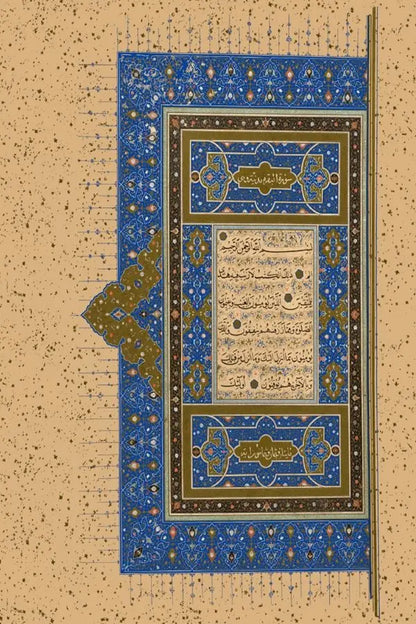 سورة البقرة مدنية وهي
بسم الله الرحمن الرحيم
الم ذلك الكتاب لا ريب فيه هدى
للمتقين الذين يؤمنون بالغيب ويقيمون
الصلوة ومما رزقناهم ينفقون والذين
يؤمنون بما انزل اليك وما انزل من قبلك
وبالاخرة هم يوقنون اولئك
مايتان اية